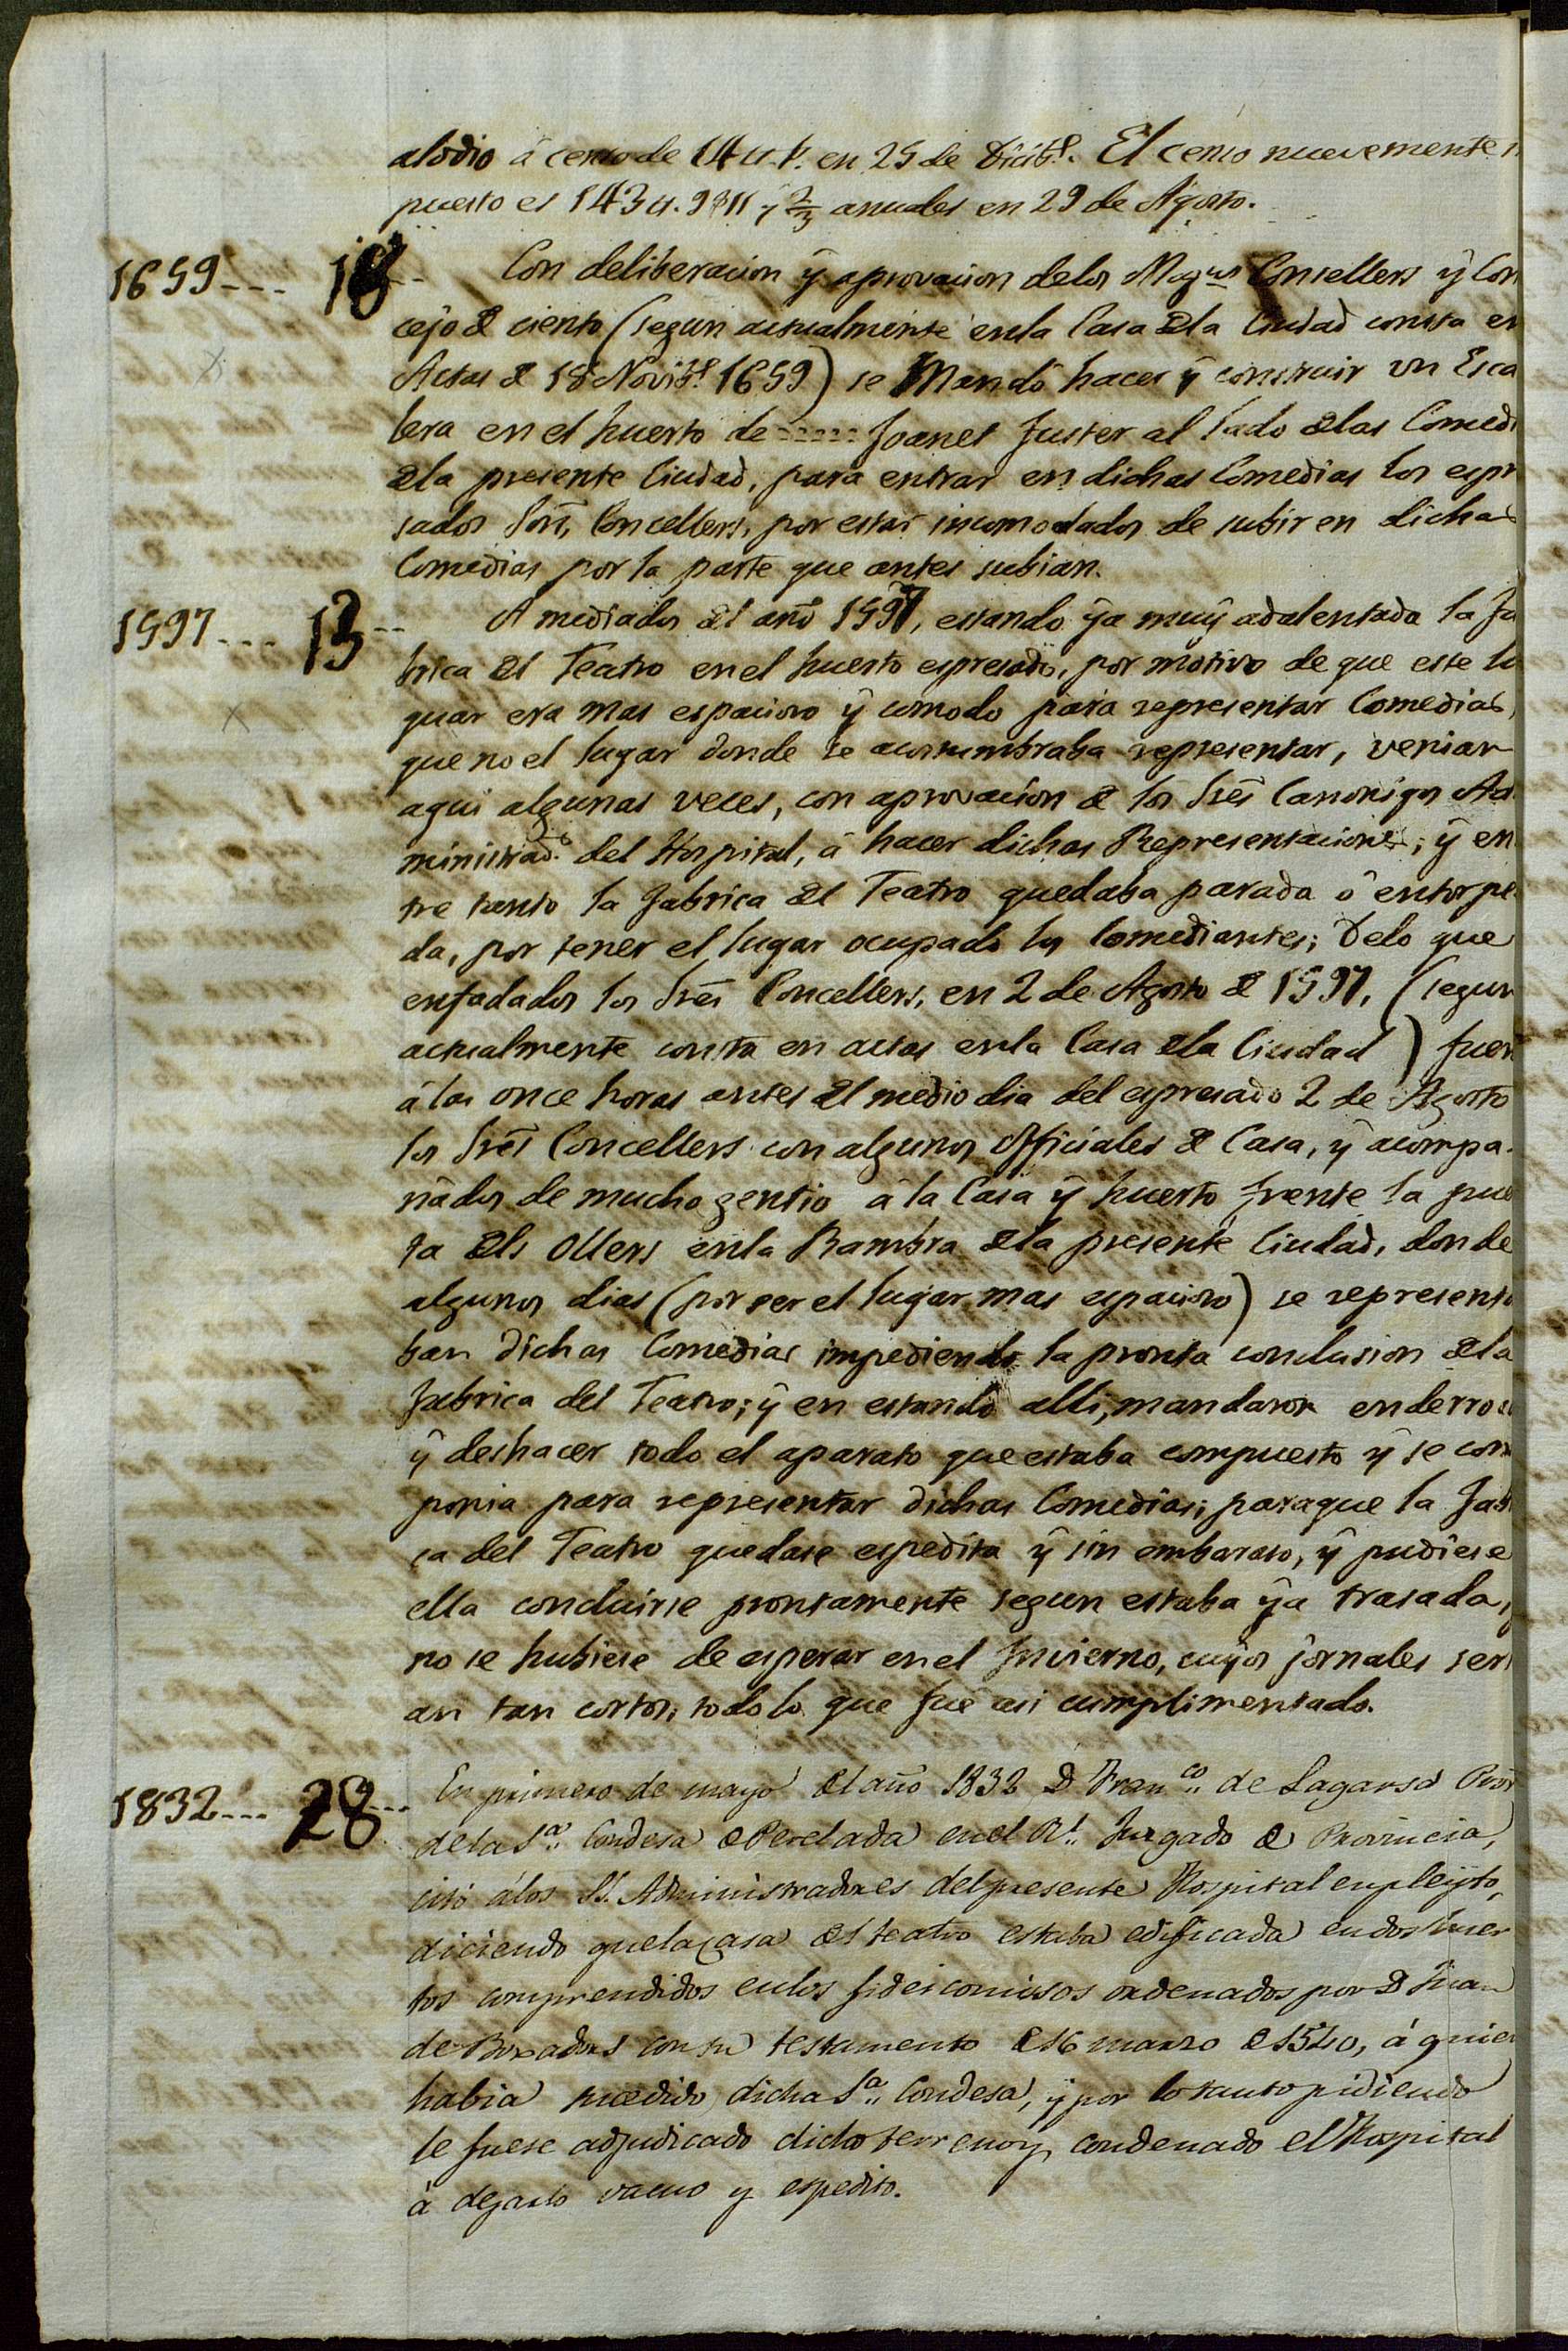 alodio á censo de 14 en 25 de Dicibe. El censo nuevemente
puesto es 143 anuales en 29 de Agosto.
1659--- 18-- Con deliberacion ÿ aprovacion delos Consellers ÿ Con
cejo de ciento (segun actualmente enla Casa dela Ciudad consta en
Actas de 18 Novibe 1659) se Mandó hacer ÿ construir vn Esca
lera en el huerto de Joanet Fuster al lado delas Comedi
dela presente Ciudad, para entrar en dichas Comedias los espr
sados Sors, Concellers, por estar incomodados de subir en dichas
Comedias por la parte que antes subian.
1597--- 13-- A mediados del año 1597, estando ÿa muÿ adalentada la Fa
brica del Teatro en el huerto espresado, por motivo de que este lu
guar era mas espacioso ÿ comodo para representar Comedias,
que no el lugar donde se acostumbraba representar, venian
aqui algunas veces, con aprovacion de los Sres Canonigos Ad
ministrads del Hospital, á hacer dichas Representaciones; ÿ en
tre tanto la Fabrica del Teatro quedaba parada ó entorpe
da, por tener el lugar ocupado los Comediantes; Delo que
enfadados los Sres Concellers, en 2 de Agosto de 1597, (segun
actualmente consta en actas enla Casa dela Ciudad) fuer
á las once horas antes del medio dia del espresado 2 de Agosto
los Sres Concellers con algunos Officiales de Casa, ÿ acompa
ñados de mucho gentio á la Casa ÿ huerto frente la pue
ta dels Ollers enla Rambra dela presente Ciudad, donde
algunos dias (por ser el lugar mas espacioso) se representa
ban dichas Comedias impediendo la pronta conclusion dela
Fabrica del Teatro; ÿ en estando alli, mandaron enderroc
ÿ deshacer todo el aparato que estaba compuesto ÿ se com
ponia para representar dichas Comedias; paraque la Fabr
ca del Teatro quedase espedita ÿ sin embaraso, ÿ pudiese
ella concluirse prontamente segun estaba ÿa trasada,
no se hubiese de esperar en el Invierno, cuÿos jornales seri
an tan cortos, todo lo que fue asi cumplimentado.
1832--- 28-- En primero de mayo del año 1832 D. Franco de Sagarsa
dela Sa. Condesa de Perelada en el Rl. Juzgado de Provincia,
citó á los SS. Administradores del presente Hospital en pleÿto,
diciendo que la casa del teatro estaba edificada en dos huer
tos comprendidos en los fideicomisos ordenados por D Juan
de Boxadors con su testamento de 16 marzo de 1540, á quien
habia sucedido dicha Sa. Condesa, ÿ por lo tanto pidiendo
le fuese adjudicado dicho terreno y condenado el Hospital
á dejarlo vacuo y espedito.